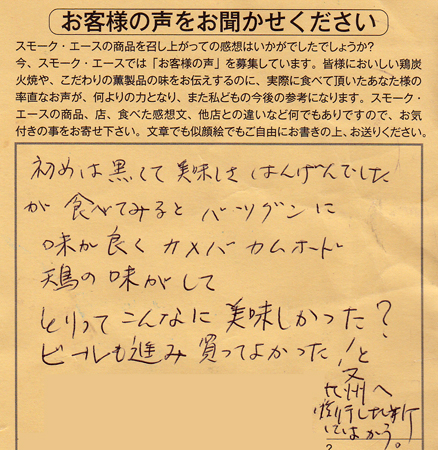 お客様の声をお聞かせください
スモーク・エースの商品を召し上がっての感想はいかがでしたでしょうか?
今、スモーク・エースでは「お客様の声」を募集しています。皆様においしい鶏炭
火焼や、こだわりの薫製品の味をお伝えするのに、実際に食べて頂いたあなた様の
率直なお声が、何よりの力となり、また私どもの今後の参考になります。スモーク・
エースの商品、店、食べた感想文、他店との違いなど何でもありですので、お気
付きの事をお寄せ下さい。文章でも似顔絵でもご自由にお書きの上、お送りください。
初めは黒くて美味しさはんげんでした
が食べてみるとバツグンに
味が良くカメバカムホード
鶏の味がして
とりってこんなに美味しかった?
ビールも進み買ってよかった!と
又
九州へ